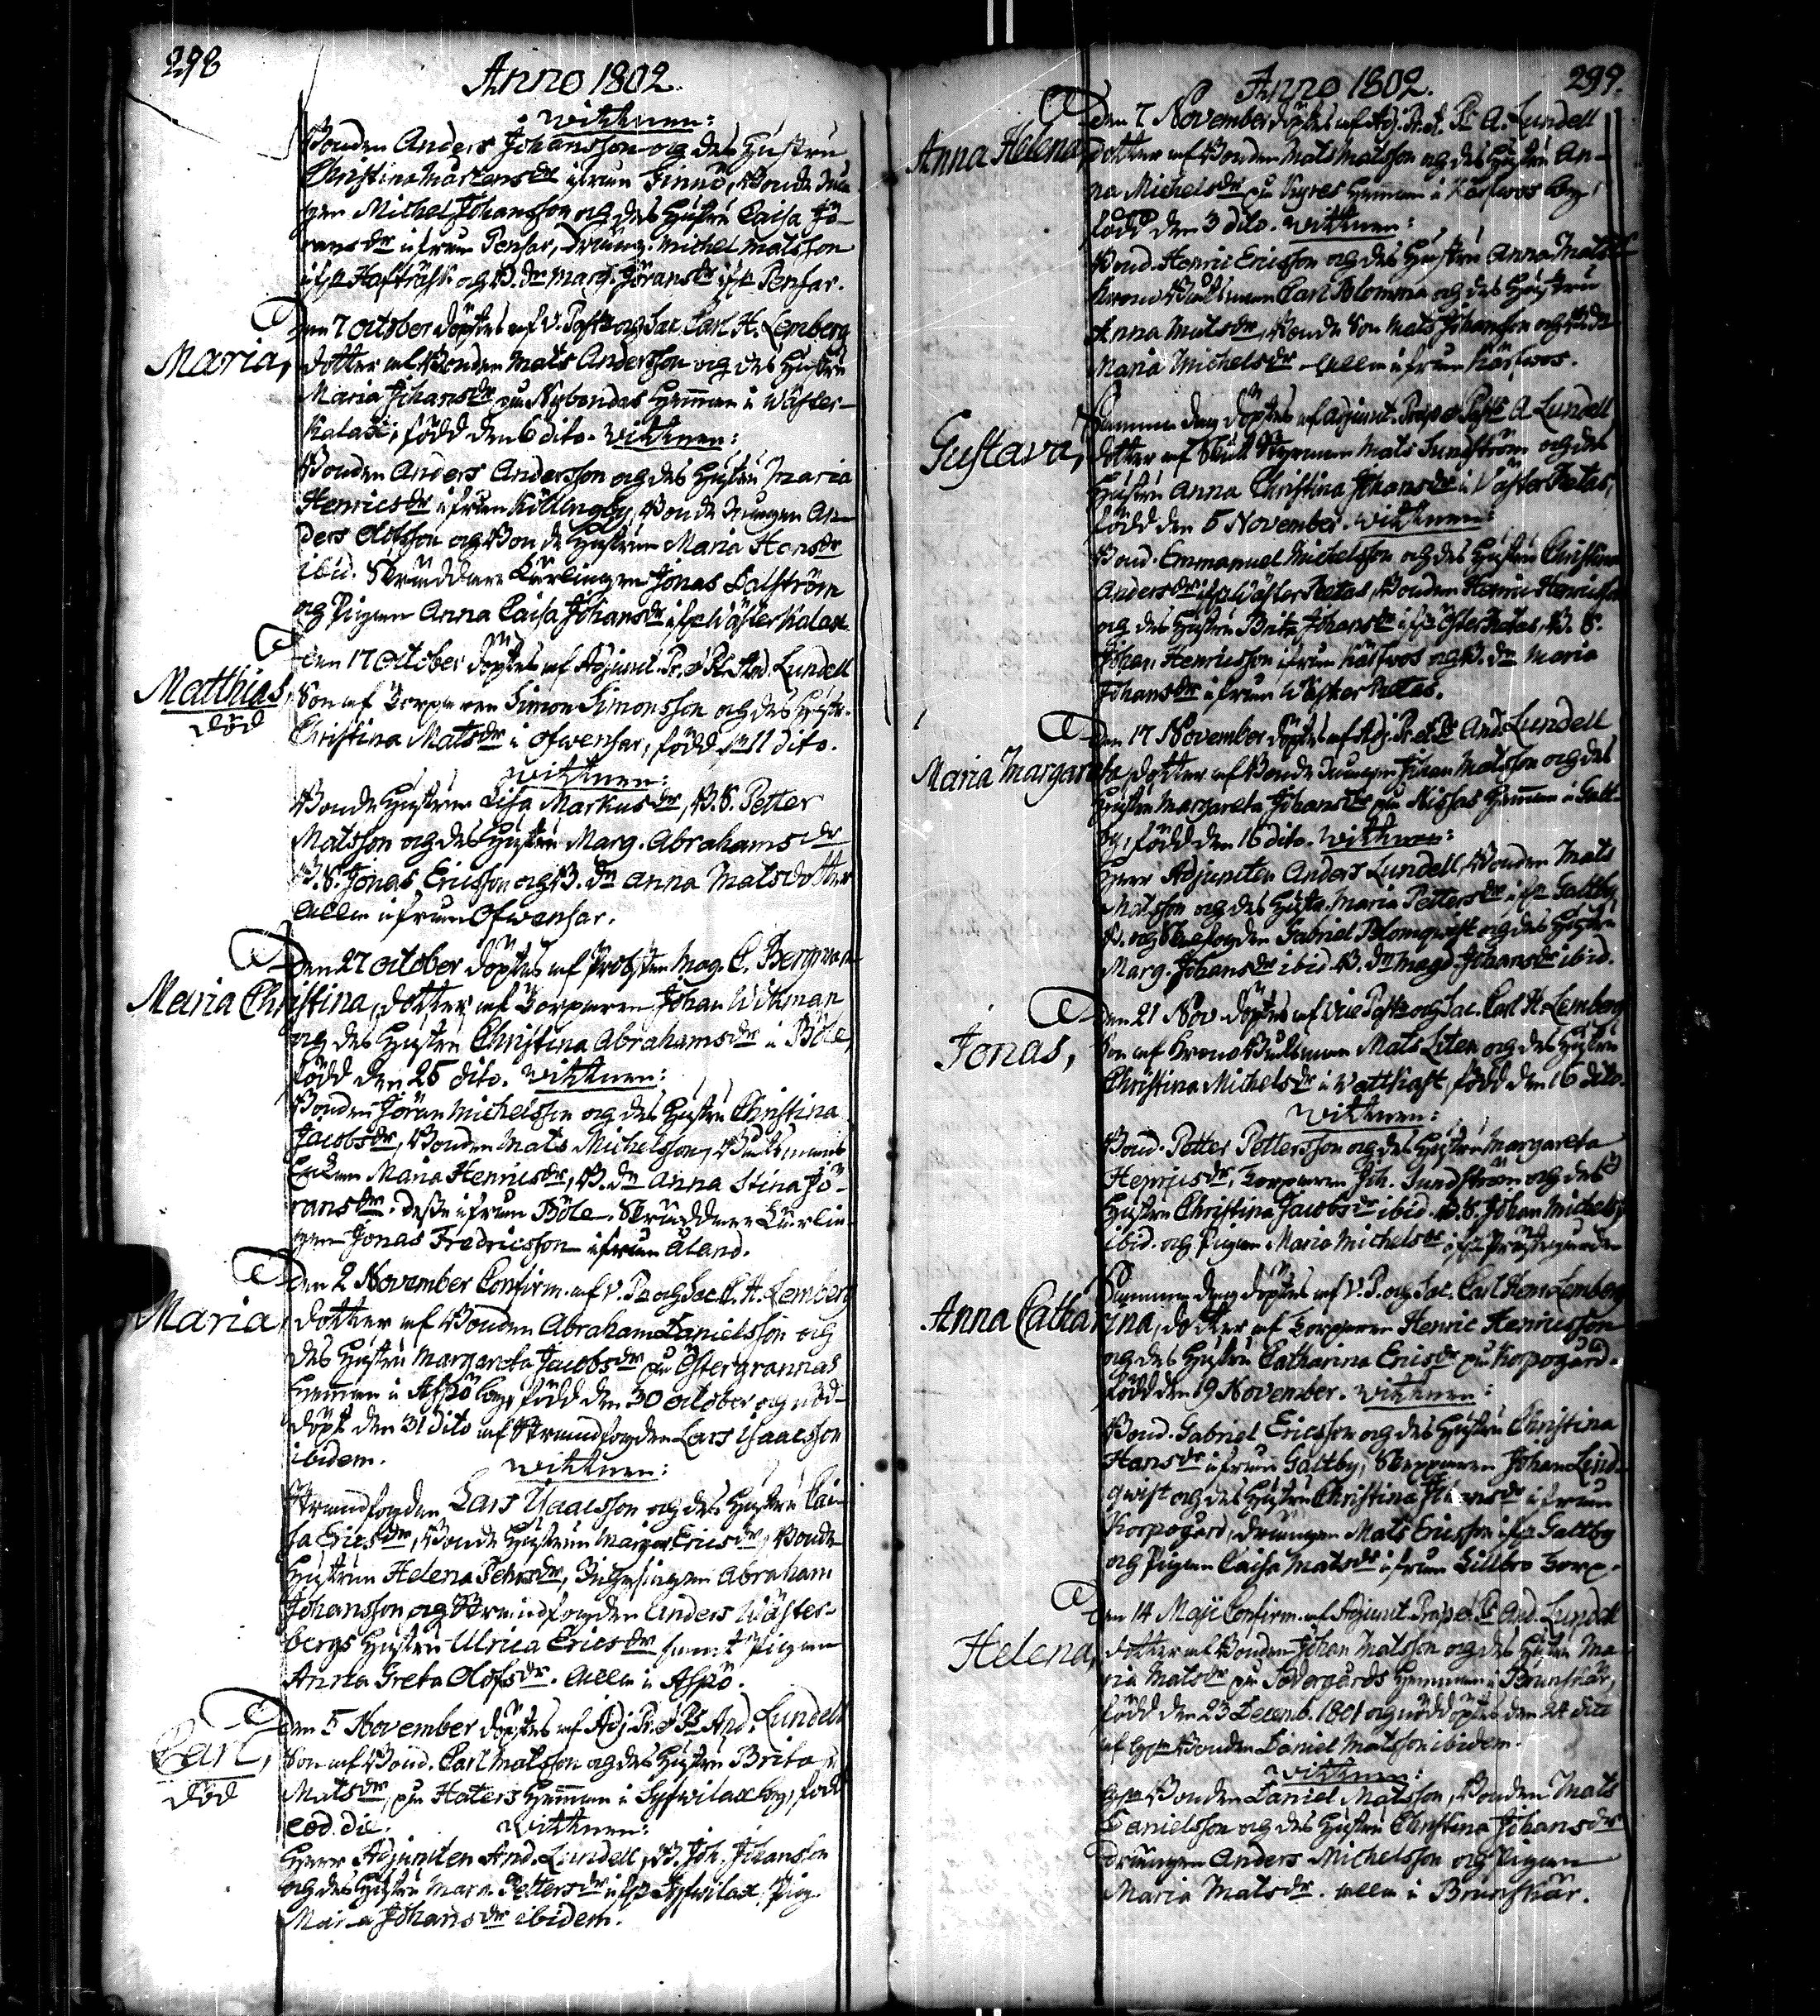 298
Anno 1802.
wittnen:
Bonden Anders Johansson og des Hustru
Christina Mårtensdr ifrån Finnö, Bonde Drän
gen Michel Johansson og des Hustru Caisa Jö-
ransdr ifrån Pensar, Dräng. Michel Matsson
og B. dr Marg. Göransdr ifrn Pensar.
Den 7 October döptes af V. Past. og Sac. Carl H. Lemberg
Maria, dotter af Bonden Mats Andersson og des Hustru
Maria Johansdr på Nybondas Hemman i Wäster-
Kalax, född den 6 dito. Wittnen:
Bonden Anders Andersson og des Hustru Maria
Henricsdr ifrån Källngby, Bonde Drängen An-
ders Olofsson og Bonde Hustrun Maria Hansdr
ibid. Skräddare Lärlingen Jonas Dalström
og Pigan Anna Caisa Johansdr ifrn Wäster Kalax.
Den 17 October döptes af Adjunct. Pr. o Pl. And. Lundell
Matthias, Son af Torparen Simon Simonsson og des Hustr.
död
Christina Matsdr i Ofwensar, född den 11 dito.
Wittnen:
Bonde Hustrun Lisa Markusdr, B. S. Petter
Matsson og des Hustru Marg. Abrahamsdr
B. S. Jonas Ericsson og B. dr Anna Matsdotter
alla ifrån Ofwensar.
Den 27 October döptes af Probsten Mag. C. Bergman
Maria Christina, dotter af Torparen Johan Wikman
og des Hustru Christina Abrahamsdr i Böle,
född den 25 dito. Wittnen:
Bonden Jöran Michelsson og des Hustru Christina
Jacobsdr, Bonden Mats Michelsson, Båtsmans
Enkan Maria Henricsdr, B. dr Anna Stina Jö-
ransdr. desse ifrån Böle. Skräddare Lärlin-
gen Jonas Fredricsson ifrån Åland.
Den 2 November Confirm. af V. P. og Sac. C. H. Lemberg
Maria, dotter af Bonden Abraham Danielsson og
des Hustru Margareta Jacobsdr på Östergrannas
Hemman i Aspö by, född den 30 October og nöd-
döpt den 31 dito af Strandfogden Lars Isaacsson
ibidem. Wittnen:
Strandfogden Lars Isaacsson og des Hustru Cai-
sa Ericsdr, Bonde Hustrun Margar. Ericsdr, Bonde
Hustrun Helena Pehrsdr, Abraham
Johansson og Strandfogden Anders Wäster-
bergs Hustru Ulrica Ericsdr samt Pigan
Anna Greta Olofsdr. Alla i Aspö.
Den 5 November döptes af Adj. Pr. o Pl. And. Lundell
Carl, Son af Bond. Carl Matsson og des Hustru Brita
död
Matsdr, på Haters Hemman i by, född
eod. die. Wittnen:
Herr Adjuncten And. Lundell, B. Joh. Johansson
og des Hustru Mara Pettersdr, Pig.
Maria Johansdr ibidem.
Anno 1802. 299.
Den 7 November döptes af Adj. Past. Pl. A. Lundell
Anna Helena, dotter af Bonden Mats Matsson og des Hustru An-
na Michelsdr på Hemman i Kärfwos by,
född den 3 dito. Wittnen:
Bond. Henric Ericsson og des Hustru Anna Matsdr
Krono Båtsman Carl Blomma og des Hustru
Anna Matsdr, Bonde Son Mats Johansson og
Maria Michelsdr Alla ifrån Kärfwos.
Samma dag döptes af Adjunct. A. Lundell
Gustava, dotter af Mats Sundström og des
Hustru Anna Christina Johansdr i Wäster Retas,
född den 5 November. Wittnen:
Bond. Emmanuel Michelsson og des Hustru Christina
Andersdr ifrn Wäster Retas, Bonden Henric Henricsson
og des Hustru Brita Johansdr ifrn Öster Retas, B. S.
Johan Henricsson ifrån Kärfwos og B. dr Maria
Johansdr ifrån Wäster Rettas.
Den 17 November döptes af Adj. Pr. o Pl. And. Lundell
Maria Margareta, dotter af Bonde Drängen Johan Matsson og des
Hustru Margareta Johansdr på Nissas Hemman i Galt-
by, född den 16 dito. Wittnen:
Herr Adjuncten Anders Lundell, Bonden Mats
Matsson og des Hustr. Maria Pettersdr ifrn Galtby,
Gabriel Blomqwist og des Hustru
Marg. Johansdr ibid. B. dr Magd. Johansdr ibid.
Den 21 Nov. döptes af Vice Past. og Sac. Carl H. Lemberg
Jonas, Son af Krono Båtsman Mats Liten og des Hustru
Christina Michelsdr i Wattkast, född den 16 dito.
Wittnen:
Bond. Petter Pettersson og des Hustru Margareta
Henricsdr, Torparen Joh. Sundström og des
Hustru Christina Jacobsdr ibid. B. S. Johan Michels.
ibid. og Pigan Maria Michelsdr ifrn Prästegården
Samma dag döptes af V. P. og Sac. Carl Henr. Lemberg
Anna Catharina, dotter af Torparen Henric Henricsson
og des Hustru Catharina Ericsdr på Korpogård.
född den 19 November. Wittnen:
Bond. Gabriel Ericsson og des Hustru Christina
Hansdr ifrån Galtby, Johan Lind-
qwist og des Hustru Christina Johansdr ifrån
Korpogård, Drängen Mats Ericsson ifrn Galtby
og Pigan Caisa Matsdr ifrån Lillbro Torp.
Den 14 Maji Confirm. af Adjunct. Pl. And. Lundell
Helena, dotter af Bonden Johan Matsson og des Hustru Ma-
ria Matsdr på Södergårds Hemman i Brunskär,
född den 23 Decemb. 1801 og nöddöptes den 24 dito
af Bonden Daniel Matsson ibidem.
Wittnen:
Bonden Daniel Matsson, Bonden Mats
Danielsson og des Hustru Christina Johansdr
Drängen Anders Michelsson og Pigan
Maria Matsdr. alla i Brunskär.